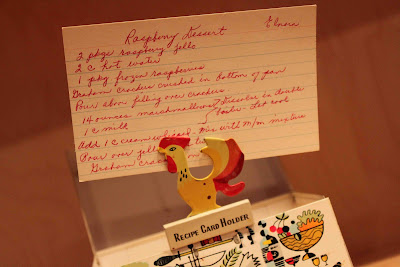 Raspberry Dessert
Elnora
2 pkgs raspberry jello
2 c hot water
1 pkg frozen raspberries
Graham crackers crushed in bottom of pan
Pour above filling over crackers
14 ounces marshmallows } Dissolve in double
1 c milk } boiler. Let cool
Add 1 c cream whipped. Mix with m/m mixture
Pour over jell
Graham
RECIPE CARD HOLDER